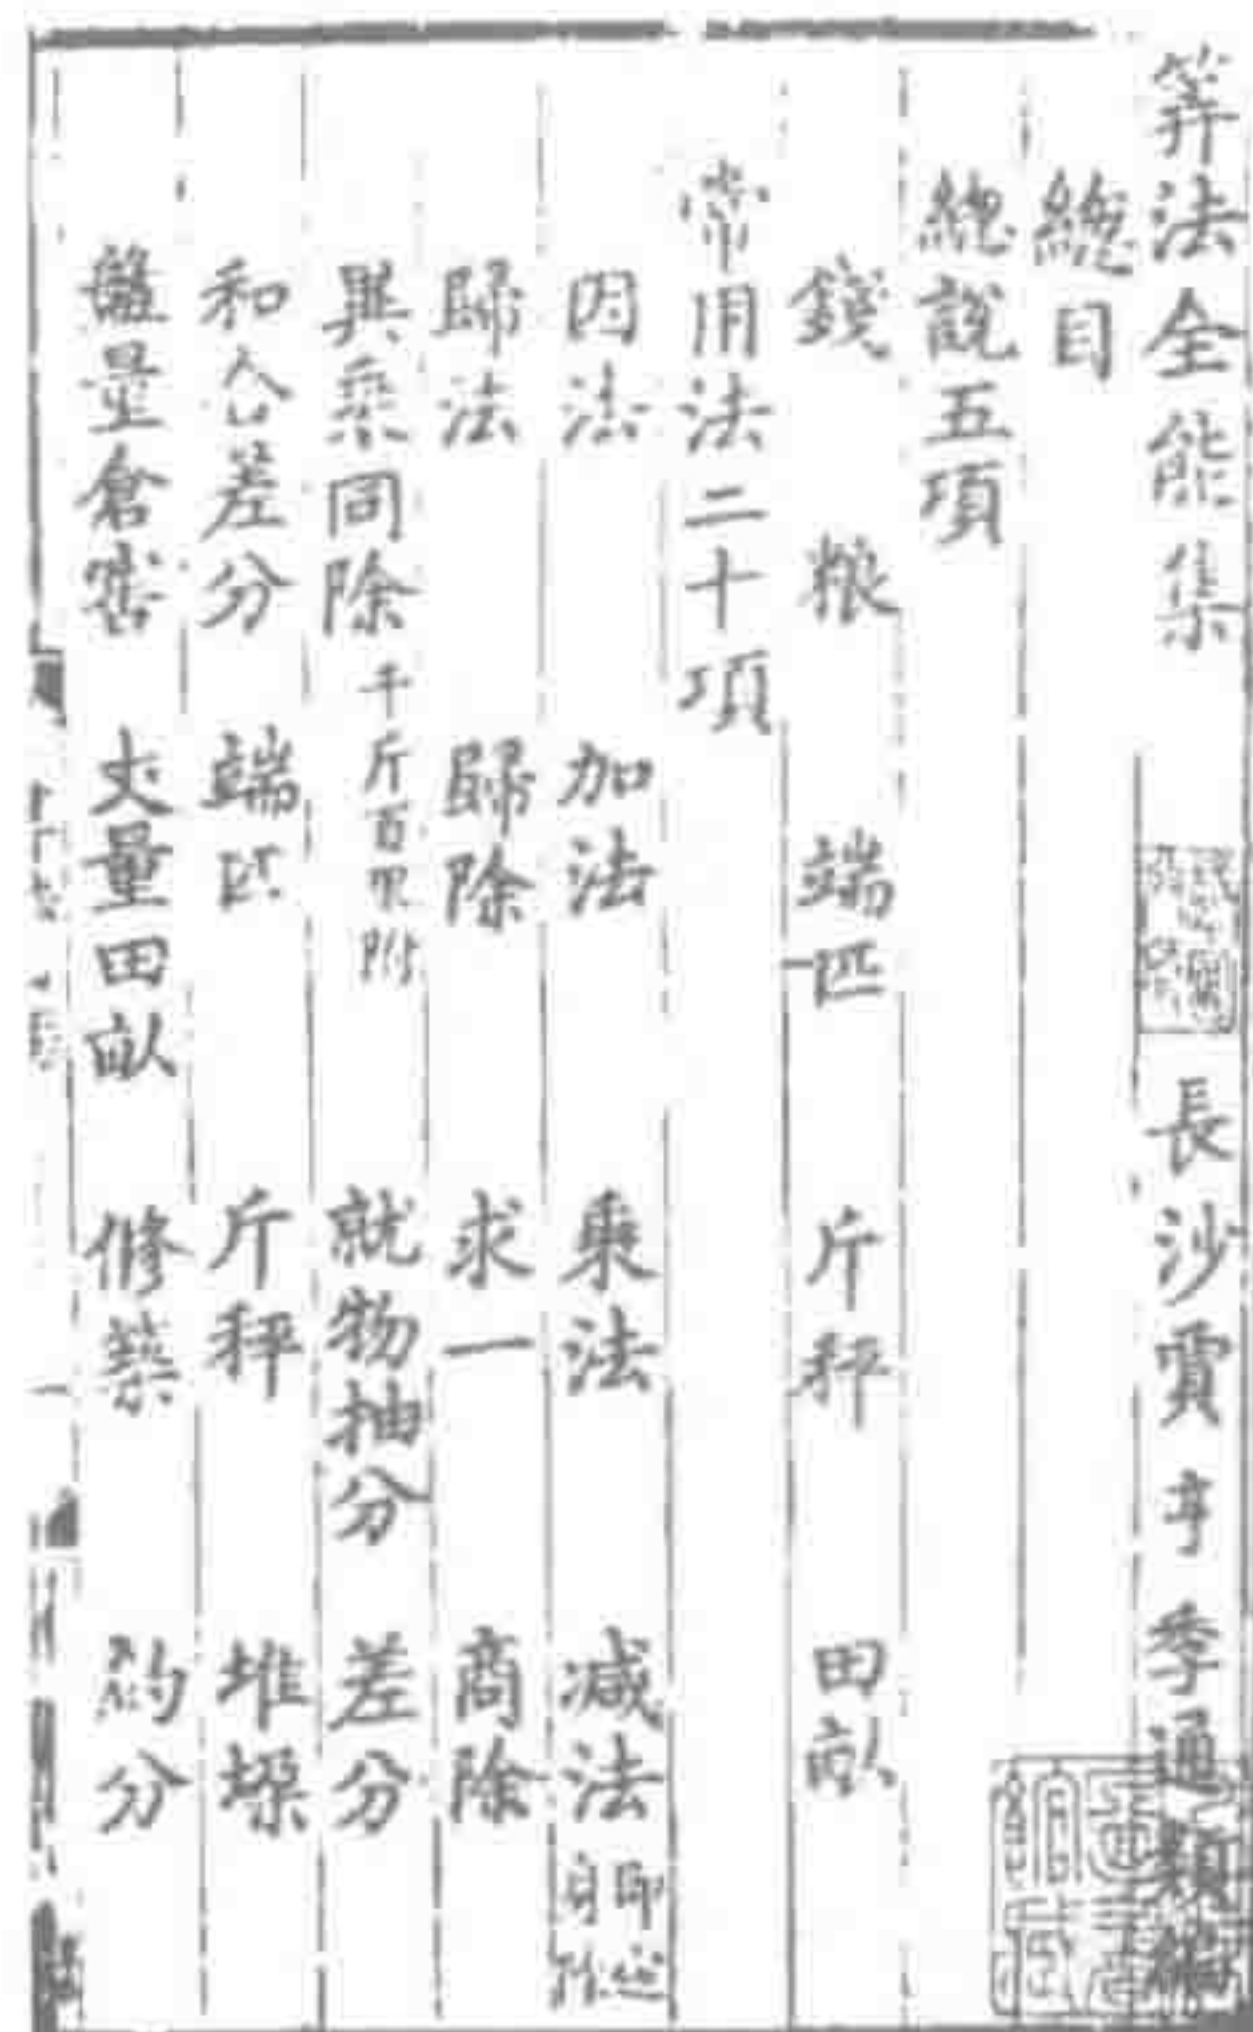 筭法全能集 長沙賈亨季通類編
總目
總說五項
錢 粮 端匹 斤秤 田畝
常用法二十項
因法 加法 乘法 減法 即定身除
歸法 歸除 求一 商除
異乘同除 千斤百里附 就物抽分 差分
和合差分 端匹 斤秤 堆垛
盤量倉窖 丈量田畝 修築 約分